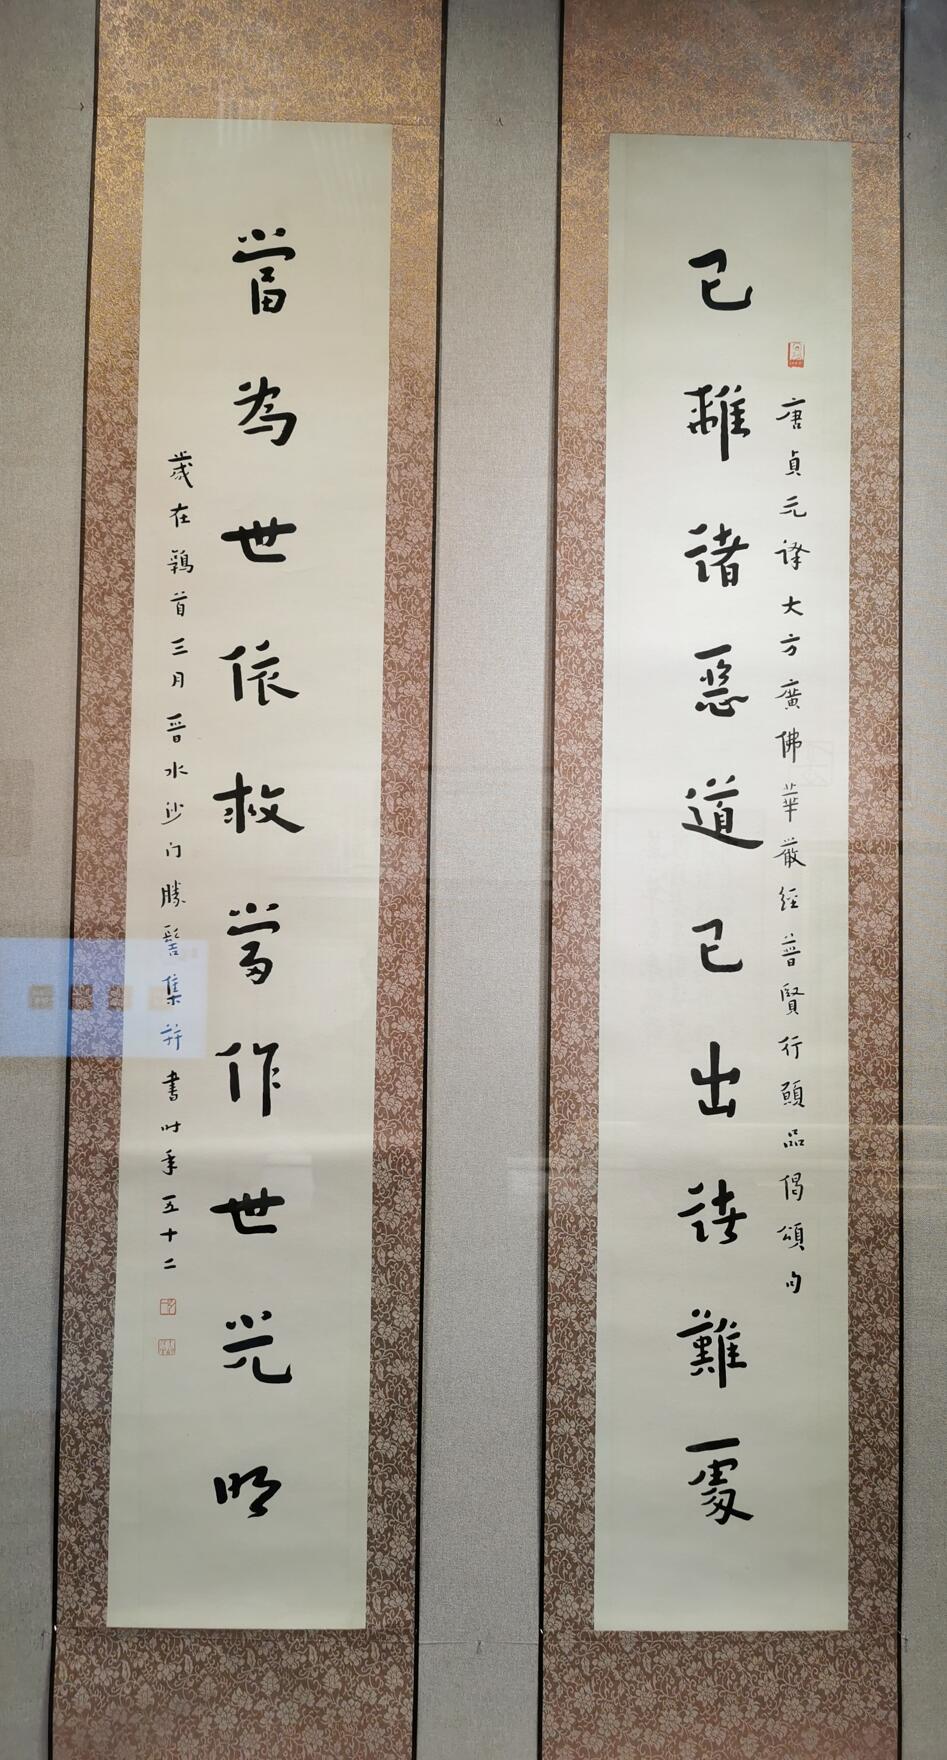 已離諸惡道已出諸難處
唐貞元譯大方廣佛華嚴經普賢行願品偈頌句
當為世依救當作世光明
歲在鶉首三月晉水沙门勝髻集并書时年五十二